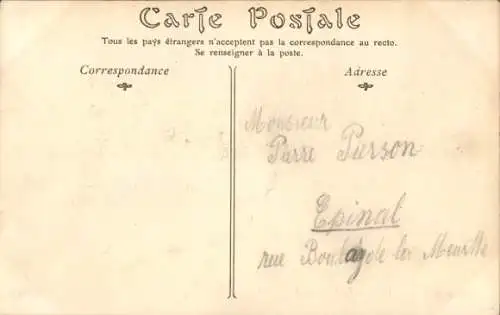 Carte Postale
Tous les pays étrangers n'acceptent pas la correspondance au recto.
Se renseigner à la poste.
Correspondance
Adresse
Monsieur
Pierre Pierson
Epinal
rue de la